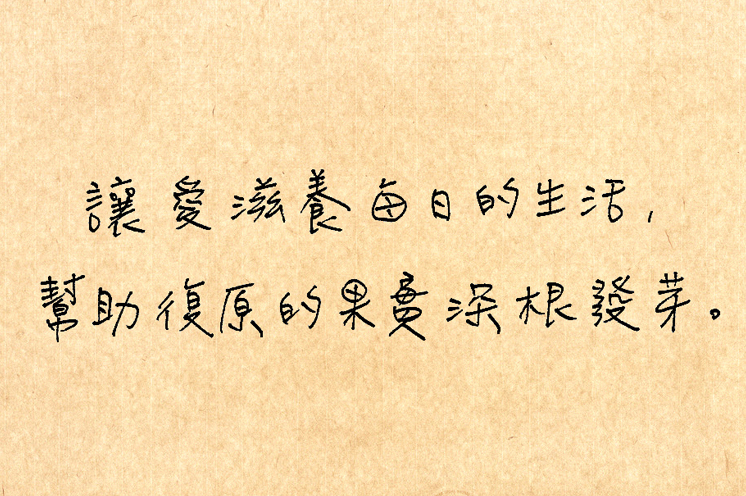 讓愛滋養每日的生活，
幫助復原的果實深根發芽。